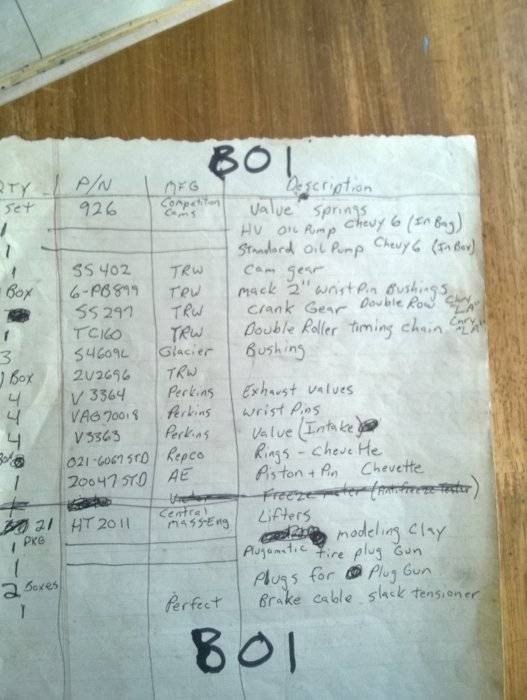 BO1
QTY P/N MFG Description
set 926 Competition Cams Valve springs
1 HV Oil Pump Chevy 6 (In Bag)
1 Standard Oil Pump Chevy 6 (In Box)
1 SS402 TRW Cam gear
Box 6-PB899 TRW Mack 2" Wrist Pin Bushings
SS297 TRW Crank Gear Double Row "LA"
1 TC160 TRW Double Roller timing chain "LA"
3 Glacier Bushing
1 Box 2U2696 TRW
4 V3364 Perkins Exhaust valves
4 VAG70018 Perkins Wrist Pins
4 V3363 Perkins Valve (Intake)
Box 021-6067STD Repco Rings - Chevette
1 20047STD AE Piston + Pin Chevette
Freeze (Antifreeze Tester)
21 HT2011 Central Mass-Eng Lifters
1 PKG modeling Clay
1 Plugamatic tire plug Gun
2 Boxes Plugs for Plug Gun
1 Perfect Brake cable slack tensioner
BO1